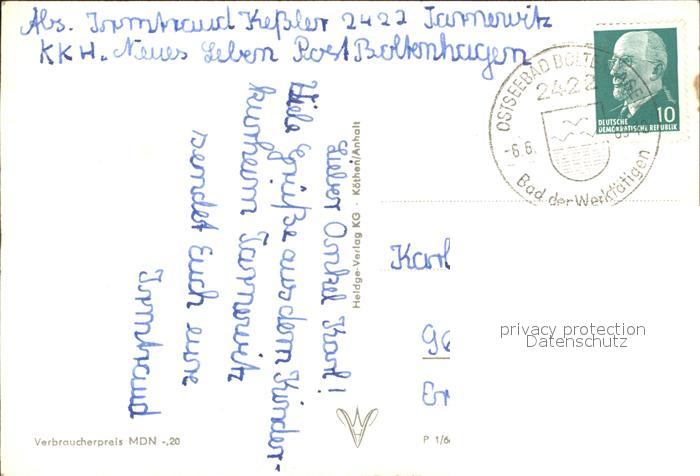 Abs. Irmtraud Keßler 2422 Tarnewitz
KKH. Neues Leben Post Boltenhagen
Lieber Onkel Karl!
Viele Grüße aus dem Kinder-
kurheim Tarnewitz
sendet Euch eure
Irmtraud
Heldge-Verlag KG · Köthen/Anhalt
OSTSEEBAD
2422
-6.6.
Bad der Werktätigen
10
DEUTSCHE
DEMOKRATISCHE REPUBLIK
Karl
96
Er
privacy protection
Datenschutz
Verbraucherpreis MDN -,20
P 1/6